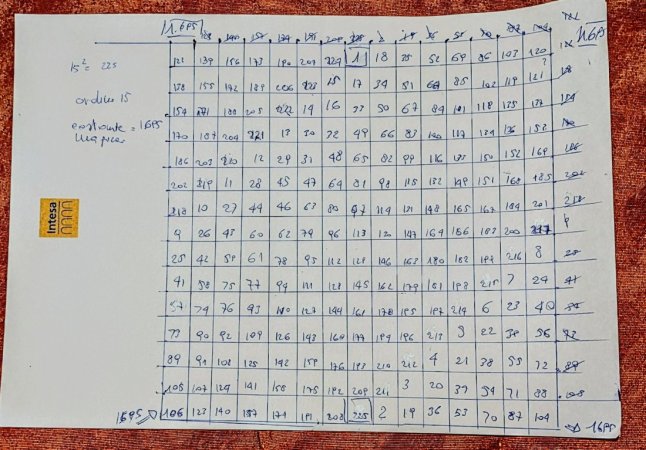 1.695
1695
122 139 156 173 190 207 224 1 18 35 52 69 86 103 120
15² = 225
138 155 172 189 206 223 15 17 34 51 68 85 102 119 121
ordine 15
154 171 188 205 222 14 16 33 50 67 84 101 118 135 137
costante = 1695
magica
170 187 204 221 13 30 32 49 66 83 100 117 134 136 153
186 203 220 12 29 31 48 65 82 99 116 133 150 152 169
202 219 11 28 45 47 64 81 98 115 132 149 151 168 185
Intesa
218 10 27 44 46 63 80 97 114 131 148 165 167 184 201
9 26 43 60 62 79 96 113 130 147 164 166 183 200 217
25 42 59 61 78 95 112 129 146 163 180 182 199 216 8
41 58 75 77 94 111 128 145 162 179 181 198 215 7 24
57 74 76 93 110 127 144 161 178 195 197 214 6 23 40
73 90 92 109 126 143 160 177 194 196 213 5 22 39 56
89 91 108 125 142 159 176 193 210 212 4 21 38 55 72
105 107 124 141 158 175 192 209 211 3 20 37 54 71 88
1695 106 123 140 157 174 191 208 225 2 19 36 53 70 87 104
1695